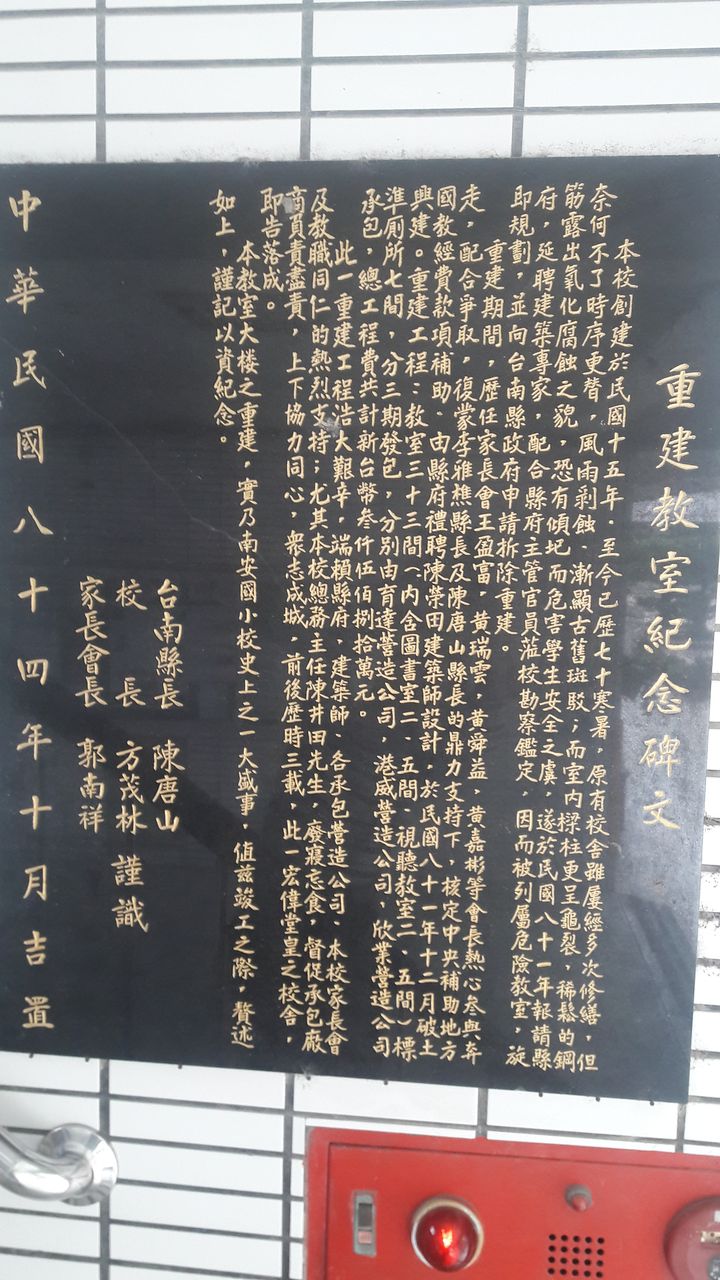 重建教室紀念碑文
本校創建於民國十五年．至今已歷七十寒暑，原有校舍雖屢經多次修繕，但
奈何不了時序更替，風雨剝蝕．漸顯古舊斑駁；而室內樑柱更呈龜裂、稀鬆的鋼
筋露出氧化腐蝕之貌，恐有傾圮而危害學生安全之虞，遂於民國八十一年報請縣
府，延聘建築專家，配合縣府主管官員蒞校勘察鑑定，因而被列屬危險教室，旋
即規劃，並向台南縣政府申請拆除重建。
重建期間，歷任家長會王盈富，黃瑞雲，黃舜益，黃嘉彬等會長熱心參與奔
走，配合爭取，復蒙李雅樵縣長及陳唐山縣長的鼎力支持下，核定中央補助地方
國教經費款項補助、由縣府禮聘陳榮田建築師設計，於民國八十一年十二月破土
興建。重建工程：教室三十三間（內含圖書室二、五間、視聽教室二、五間）標
準廁所七間，分三期發包，分別由育達營造公司，港威營造公司，欣業營造公司
承包，總工程費共計新台幣叁仟伍佰捌拾萬元。
此一重建工程浩大艱辛，端賴縣府，建築師、各承包營造公司、本校家長會
及教職同仁的熱烈支持；尤其本校總務主任陳井田先生，廢寢忘食，督促承包廠
商員責盡責，上下協力同心，衆志成城，前後歷時三載，此一宏偉堂皇之校舍，
即告落成。
本教室大楼之重建，實乃南安國小校史上之一大盛事，值茲竣工之際，贅述
如上，謹記以資紀念。
台南縣長 陳唐山
校長 方茂林 謹識
家長會長 郭南祥
中華民國八十四年十月吉置